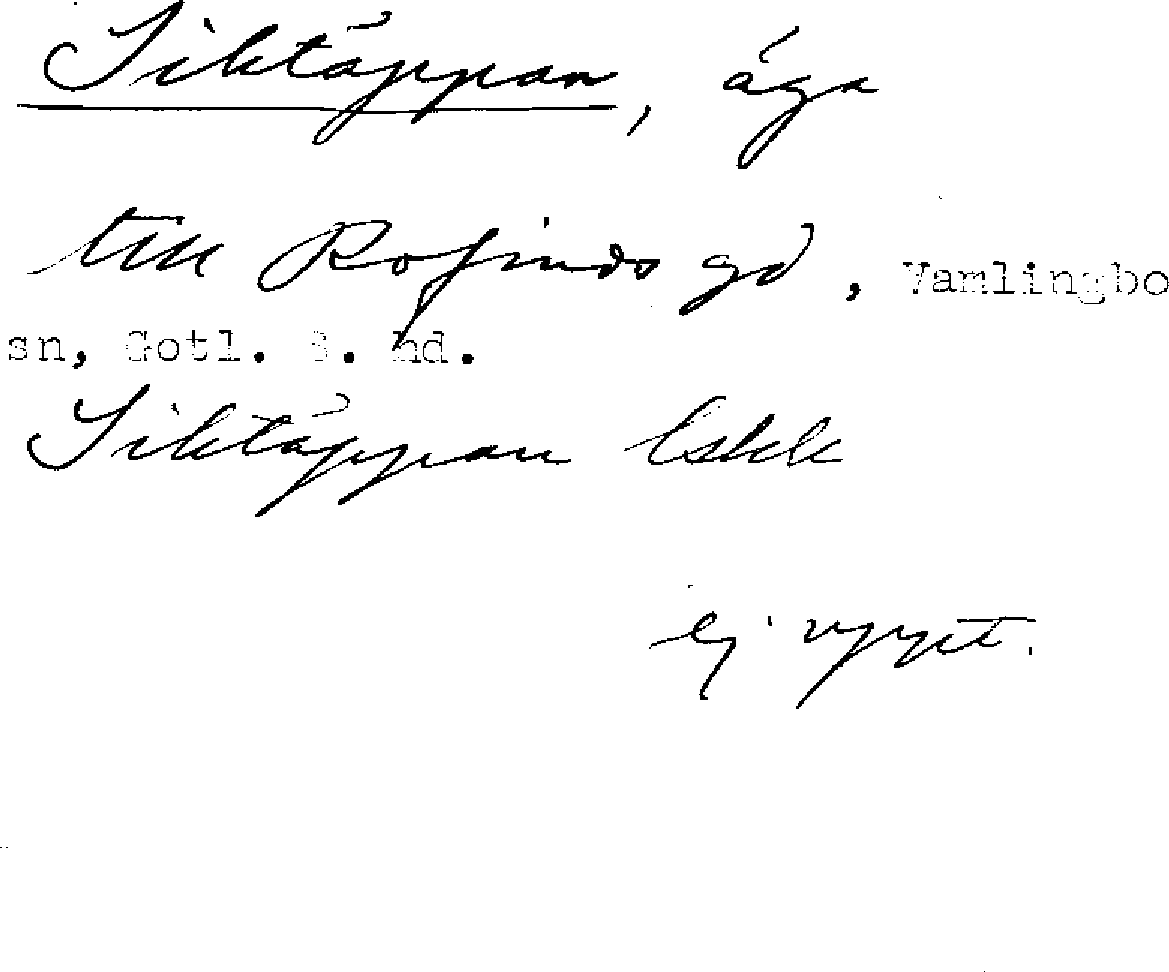 Siktäppan, äga
till Rofinds gd, Vamlingbo
sn, Gotl. S. hd.
Siktäppan Estek
ej uppt.